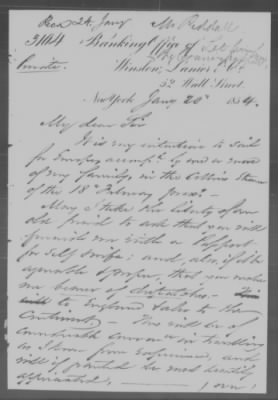 Rec 24. Jany
Mr.
Private.
Banking Office of
Winslow, Lanier & Co.
52 Wall Street.
New York Jany 20th 1854.
My dear Sir
It is my intention to sail
for Europe accomp. by one or more
of my family, in the Collins Steamer
of the 18th February
May I take the liberty of an
old friend to ask that you will
furnish me with a Passport
for Self & wife; and also, if
agreable & proper, that you make
me bearer of dispatches.
to England & to the
Continent. — This will be of
considerable in travelling
as I know from experience, and
will if granted be most heartily
appreciated,